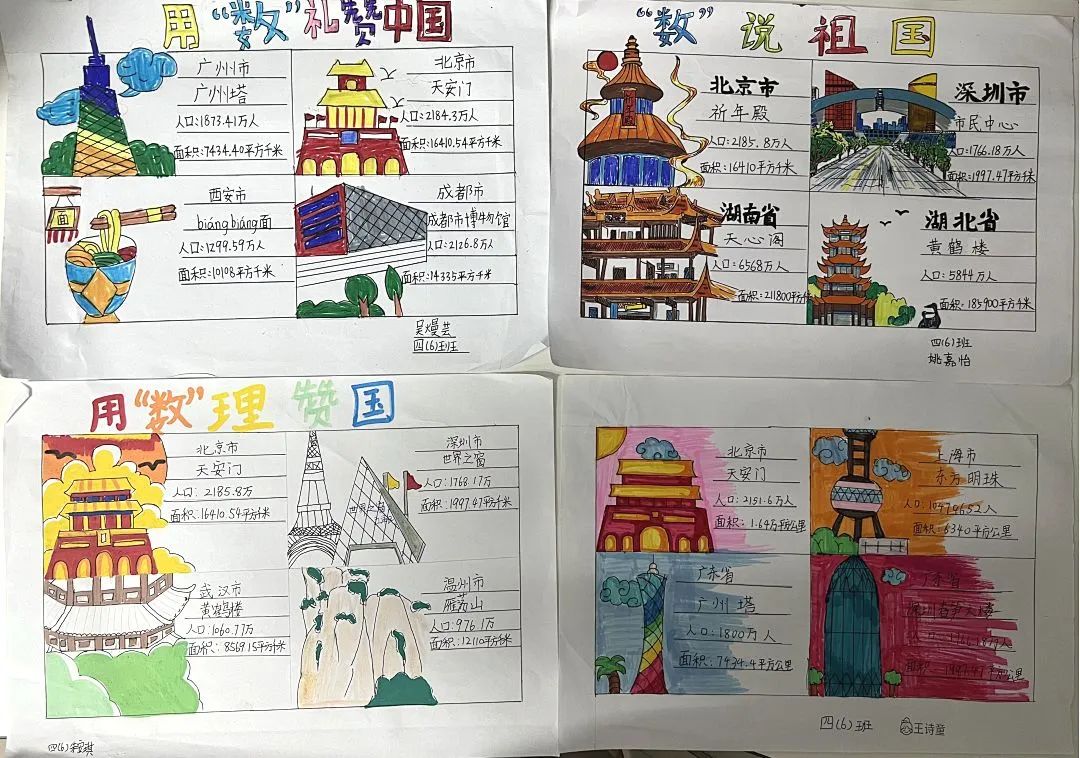 用“数”礼赞中国
广州市
广州塔
人口:1873.41万人
面积:7434.40平方千米
北京市
天安门
人口:2184.3万人
面积:16410.54平方千米
面
西安市
biángbiáng面
人口:1299.59万人
面积:10108平方千米
成都市
成都市博物馆
人口:2126.8万人
面积:14335平方千米
吴熳芸
四(6)班
“数”说祖国
北京市
祈年殿
人口:2185.8万人
面积:16410平方千米
深圳市
市民中心
人口:1766.18万人
面积:1997.47平方千米
湖南省
天心阁
人口:6568万人
面积:211800平方千米
湖北省
黄鹤楼
人口:5844万人
面积:185900平方千米
四(6)班
姚嘉怡
用“数”理赞国
北京市
天安门
人口:2185.8万
面积:16410.54平方千米
深圳市
世界之窗
人口:1768.17万
面积:1997.47平方千米
世界之窗
武汉市
黄鹤楼
人口:1060.77万
面积:8569.15平方千米
温州市
雁荡山
人口:976.1万
面积:12110平方千米
四(6)
北京市
天安门
人口:2151.6万人
面积:1.64万平方公里
上海市
东方明珠
人口:10479652人
面积:6340平方公里
广东省
广州塔
人口:1800万人
面积:7434.4平方公里
广东省
面积:1997.47平方公里
四(6)班
王诗童